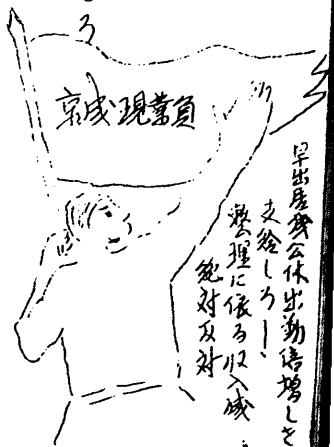 ろ
京成現業員
早出居残公休出勤倍増しを
支給しろー!
整理に依る収入減
絶対反対